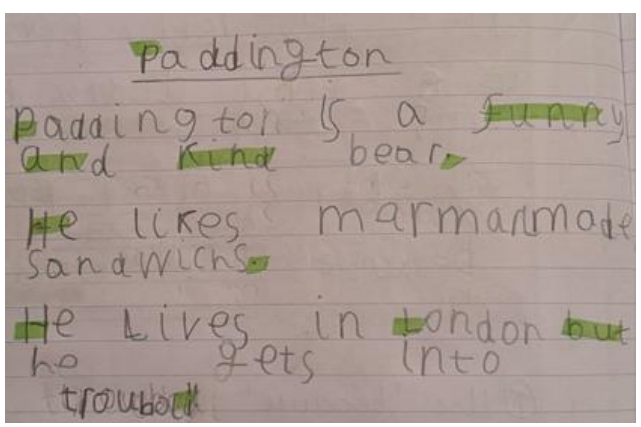 Paddington
Paddington is a funny
and kind bear.
He likes marmarmade
sandwichs.
He Lives in London but
he gets into